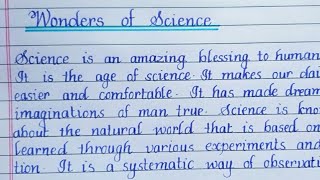 Wonders of Science
Science is an amazing blessing to human
It is the age of science. It makes our dai
easier and comfortable. It has made dream
imaginations of man true. Science is kno
about the natural world that is based on
learned through various experiments and
tion. It is a systematic way of observati